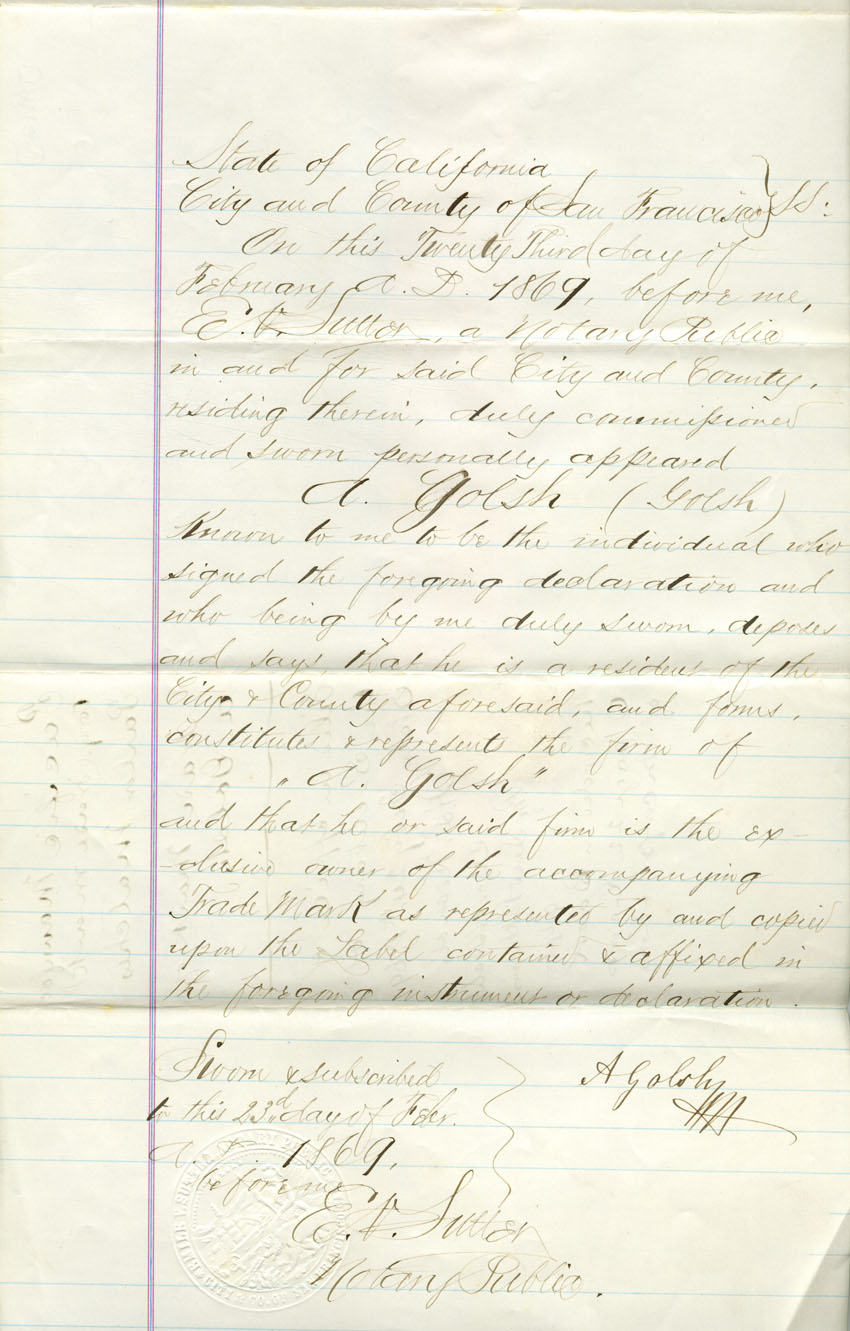 State of California
City and County of San Francisco } SS:
On this Twenty Third day of
February A. D. 1869, before me,
E. V. Sutter, a Notary Public
in and for said City and County,
residing therein, duly commissioned
and sworn personally appeared
A. Golsh (Golsh)
Known to me to be the individual who
signed the foregoing declaration and
who being by me duly sworn, deposes
and says, that he is a resident of the
City & County aforesaid, and forms,
constitutes & represents the firm of
"A. Golsh"
and that he or said firm is the ex-
-clusive owner of the accompanying
Trade Mark as represented by and copied
upon the Label contained & affixed in
the foregoing instrument or declaration.
Sworn & subscribed
to this 23d day of Febr.
A. D. 1869,
before me
A Golsh
E. V. Sutter
Notary Public.